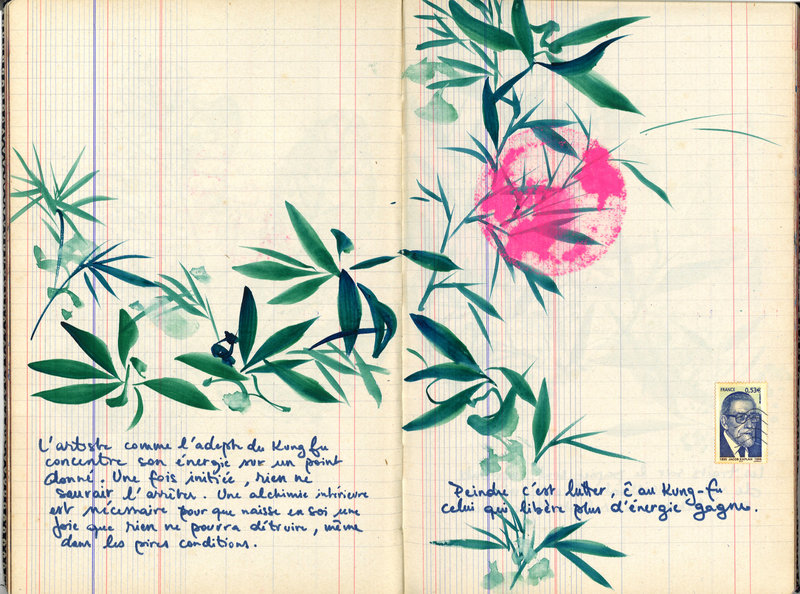 L'artiste comme l'adepte du Kung fu
concentre son énergie sur un point
donné. Une fois initiée, rien ne
saurait l'arrêter. Une alchimie intérieure
est nécessaire pour que naisse en soi, une
joie que rien ne pourra détruire, même
dans les pires conditions.
Peindre c'est lutter, ê au Kung-fu
celui qui libère plus d'énergie gagne.
FRANCE 0,53€
1895 JACOB KAPLAN 1994